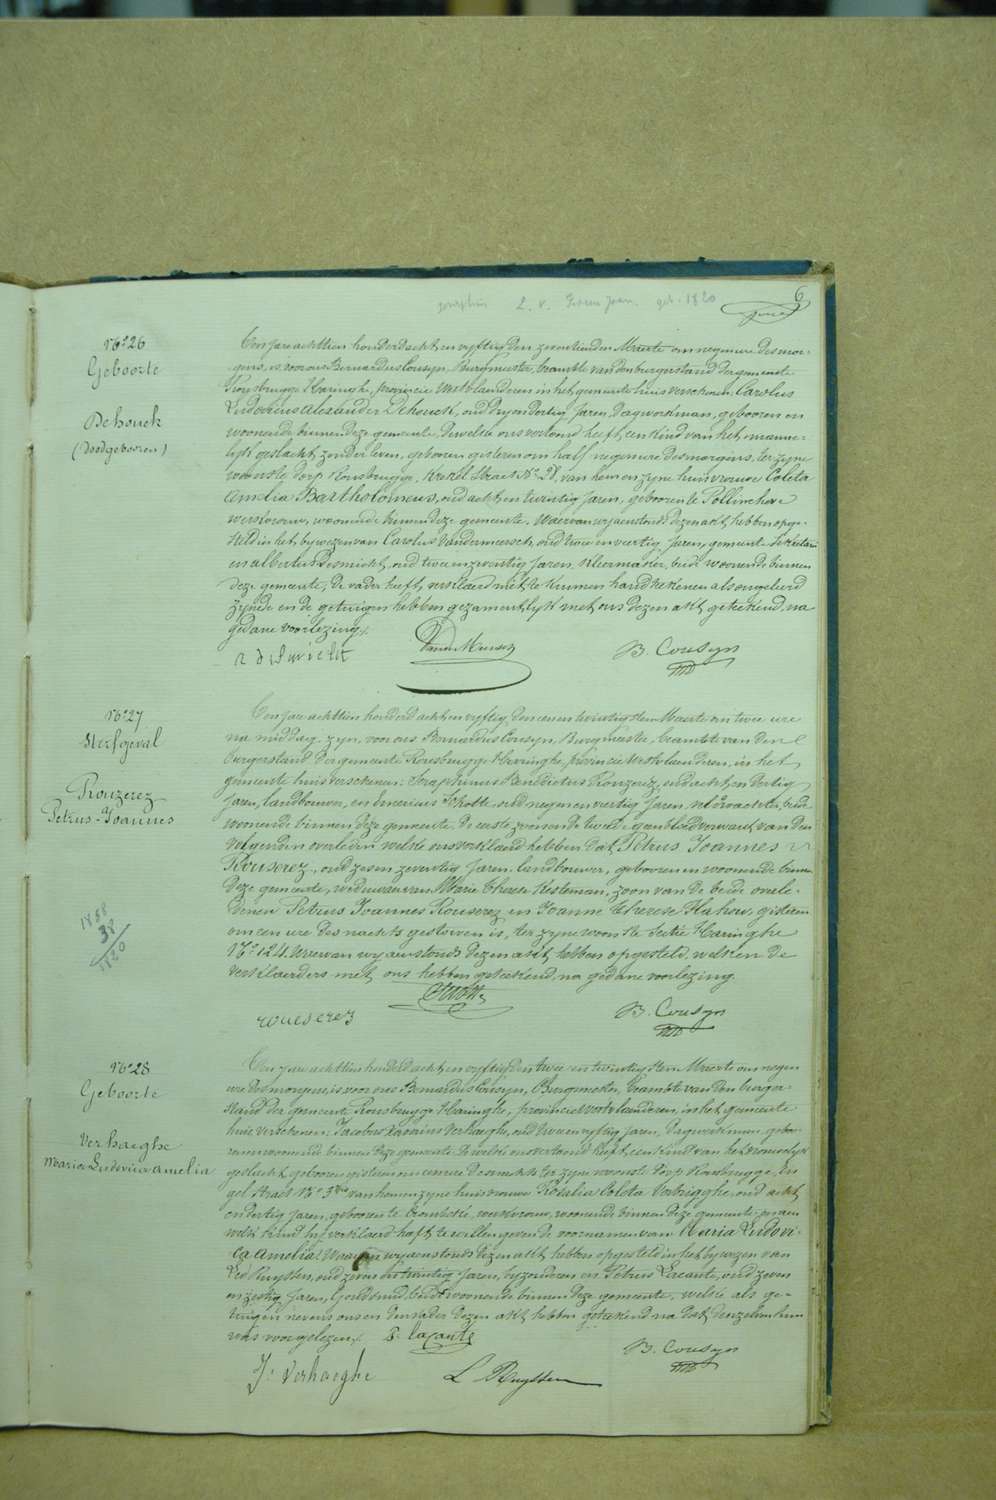 6
geb. 1820
N° 26
Geboorte
Dehouck
(Doodgebooren)
Den jare achttien honderd acht en vyftig den Maerte om negen ure des mor-
gens, is voor ons Bernardus Cousyn, Burgmeester, beambte van den burgerstand der gemeente
Rousbrugge-Haringhe, provincie Westvlaenderen in het gemeente huis verschenen Carolus
Ludovicus Alexander Dehouck, oud dry en dertig Jaren, dagwerkman, gebooren en
woonende binnen deze gemeente, dewelke ons vertoond heeft een kind van het manne-
lyk geslacht zonder leven, gebooren gisteren om half negen ure des morgens, ter zyne
woonste dorp Rousbrugge, Krekel Straet N° 28, van hem en zyne huisvrouwe Coleta
Amelia Bartholomeus, oud acht en twintig Jaren, gebooren te Pollinchove
werkvrouw, woonende binnen deze gemeente. Waervan wy aenstonds dezen akt hebben opge-
steld in het bywezen van Carolus Vandermeersch, oud twee en veertig Jaren, gemeente Sekretaris
en Albertus Desmicht, oud twee en twintig Jaren, kleermaker, beide woonende binnen
deze gemeente, De vader heeft verklaerd niet te kunnen handtekenen als ongeleerd
zynde en de getuigen hebben gezamentlyk met ons dezen akt getekend na
gedane voorlezing.
a desmicht VanderMeersch B. Cousyn
N° 27
Sterfgeval
Rouzerez
Petrus-Joannes
1858
38
1820
Den jare achttien honderd acht en vyftig, den een en twintigsten Maerte om twee ure
na middag, zyn voor ons Bernardus Cousyn, Burgmeester, beambte van den
burgerstand der gemeente Rousbrugge-Haringhe, provincie Westvlaenderen, in het
gemeente huis verschenen Seraphinus Benedictus Rouzerez, oud acht en dertig
Jaren, landbouwer, en Emericus Schotte, oud negen en veertig Jaren, veldwachter, beide
woonende binnen deze gemeente, de eerste zoon en de tweede geen bloedverwant van den
volgenden overleden welke ons verklaerd hebben dat Petrus Joannes
Rouserez, oud zes en zeventig Jaren, landbouwer, gebooren en woonende binnen
deze gemeente, weduwaer van Marie Therese Kesteman, zoon van de beide overle-
denen Petrus Joannes Rouserez en Joanne Therese Hahou, gisteren
om een ure des nachts gestorven is, ter zyne woonste Sectie Haringhe
N° 124. Waervan wy aenstonds dezen akt hebben opgesteld, welken de
verklaerders met ons hebben getekend, na gedane voorlezing.
rouserez Schotte B. Cousyn
N° 28
Geboorte
Verhaeghe
Maria Ludovica Amelia
Den jare achttien honderd acht en vyftig den twee en twintigsten Maerte om negen
ure des morgens, is voor ons Bernardus Cousyn, Burgmeester, beambte van den burger-
stand der gemeente Rousbrugge-Haringhe, provincie Westvlaenderen, in het gemeente
huis verschenen Jacobus Verhaeghe, oud twee en vyftig Jaren, dagwerkman, geboo-
ren en woonende binnen deze gemeente, dewelke ons vertoond heeft een kind van het vrouwelyk
geslacht, gebooren gisteren om een ure des nachts ter zyne woonste dorp Rousbrugge,
Straet N° 3, van hem en zyne huisvrouwe Rosalia Coleta Verbrigghe, oud acht
en dertig Jaren, gebooren te Crombeke, werkvrouw, woonende binnen deze gemeente, en aen
welk kind hy verklaerd heeft te willen geven de voornamen van Maria Ludovi-
ca Amelia. Waervan wy aenstonds dezen akt hebben opgesteld in het bywezen van
Leo Ruyssen, oud zeven en twintig Jaren, byzonderen en Petrus Lacante, oud zeven
en zestig Jaren, Goudsmid, beide woonende binnen deze gemeente, welke als ge-
tuigen nevens ons en den vader dezen akt hebben getekend na dat denzelven hun
was voorgelezen.
P. Lacante
J: Verhaeghe L Ruyssen B. Cousyn